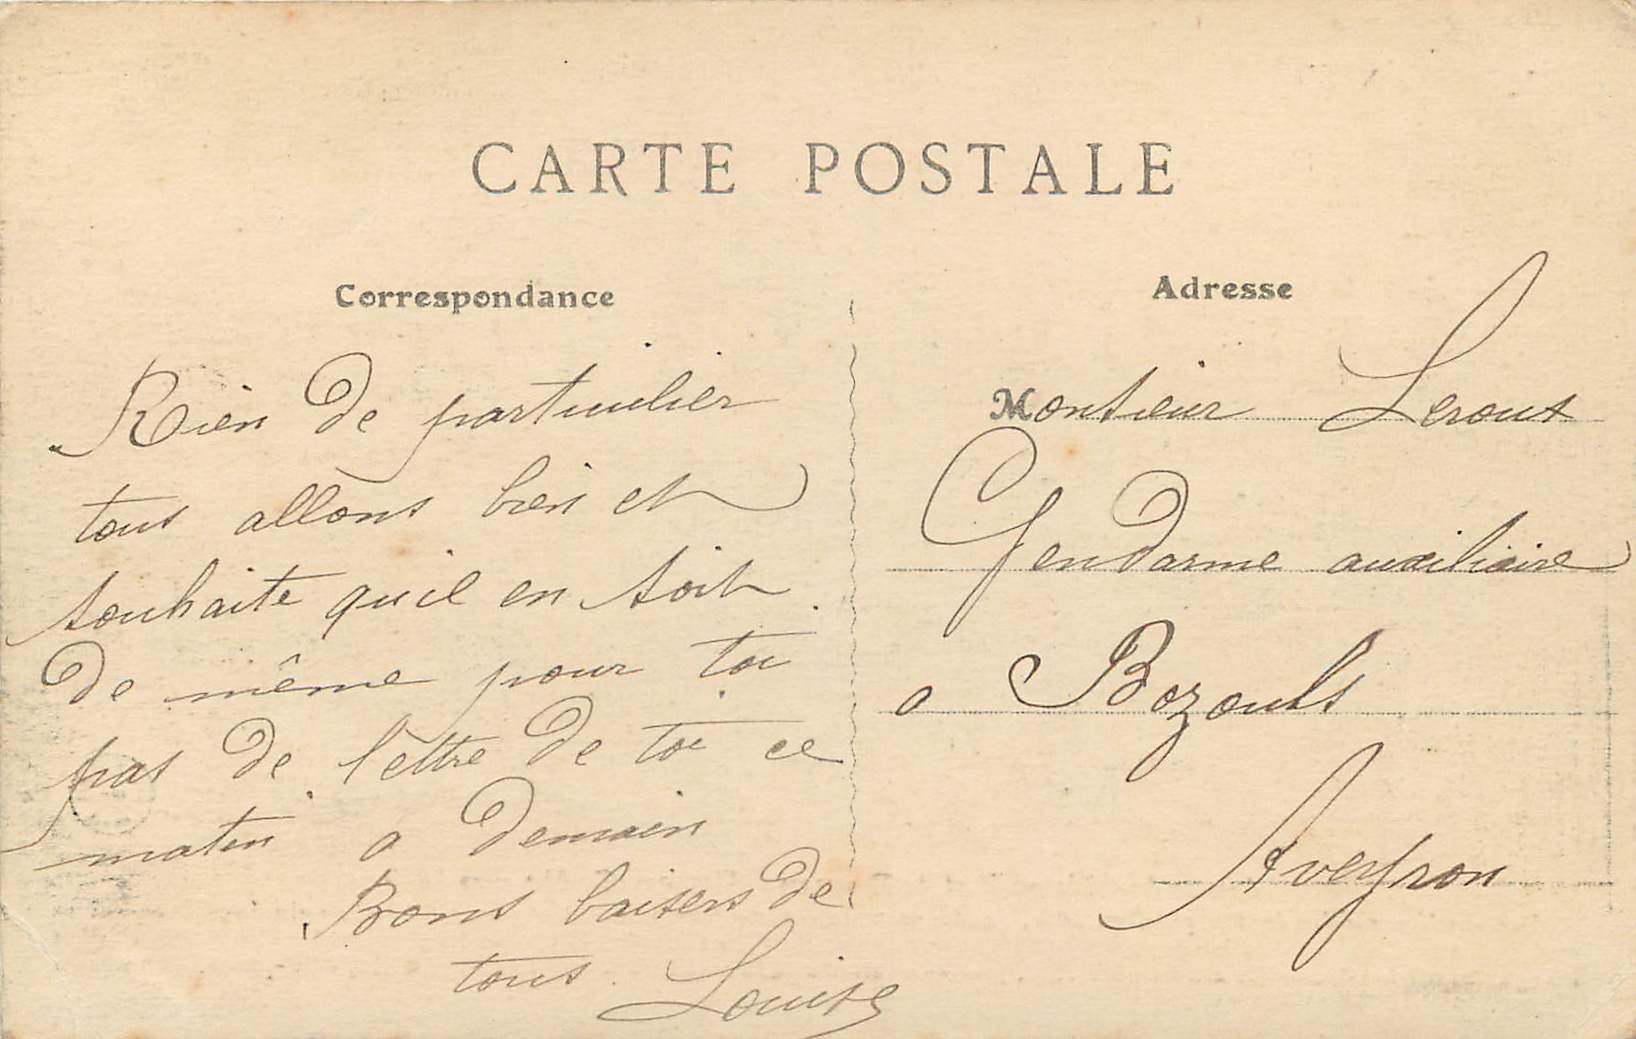 CARTE POSTALE
Correspondance
Rien de particulier
tous allons bien et
souhaite qu'il en soit
de même pour toi
pas de lèttre de toi ce
matin a demain
Bons baisers de
tous Louise
Adresse
Monsieur Leroux
Gendarme auxiliaire
a Bozouls
Aveyron